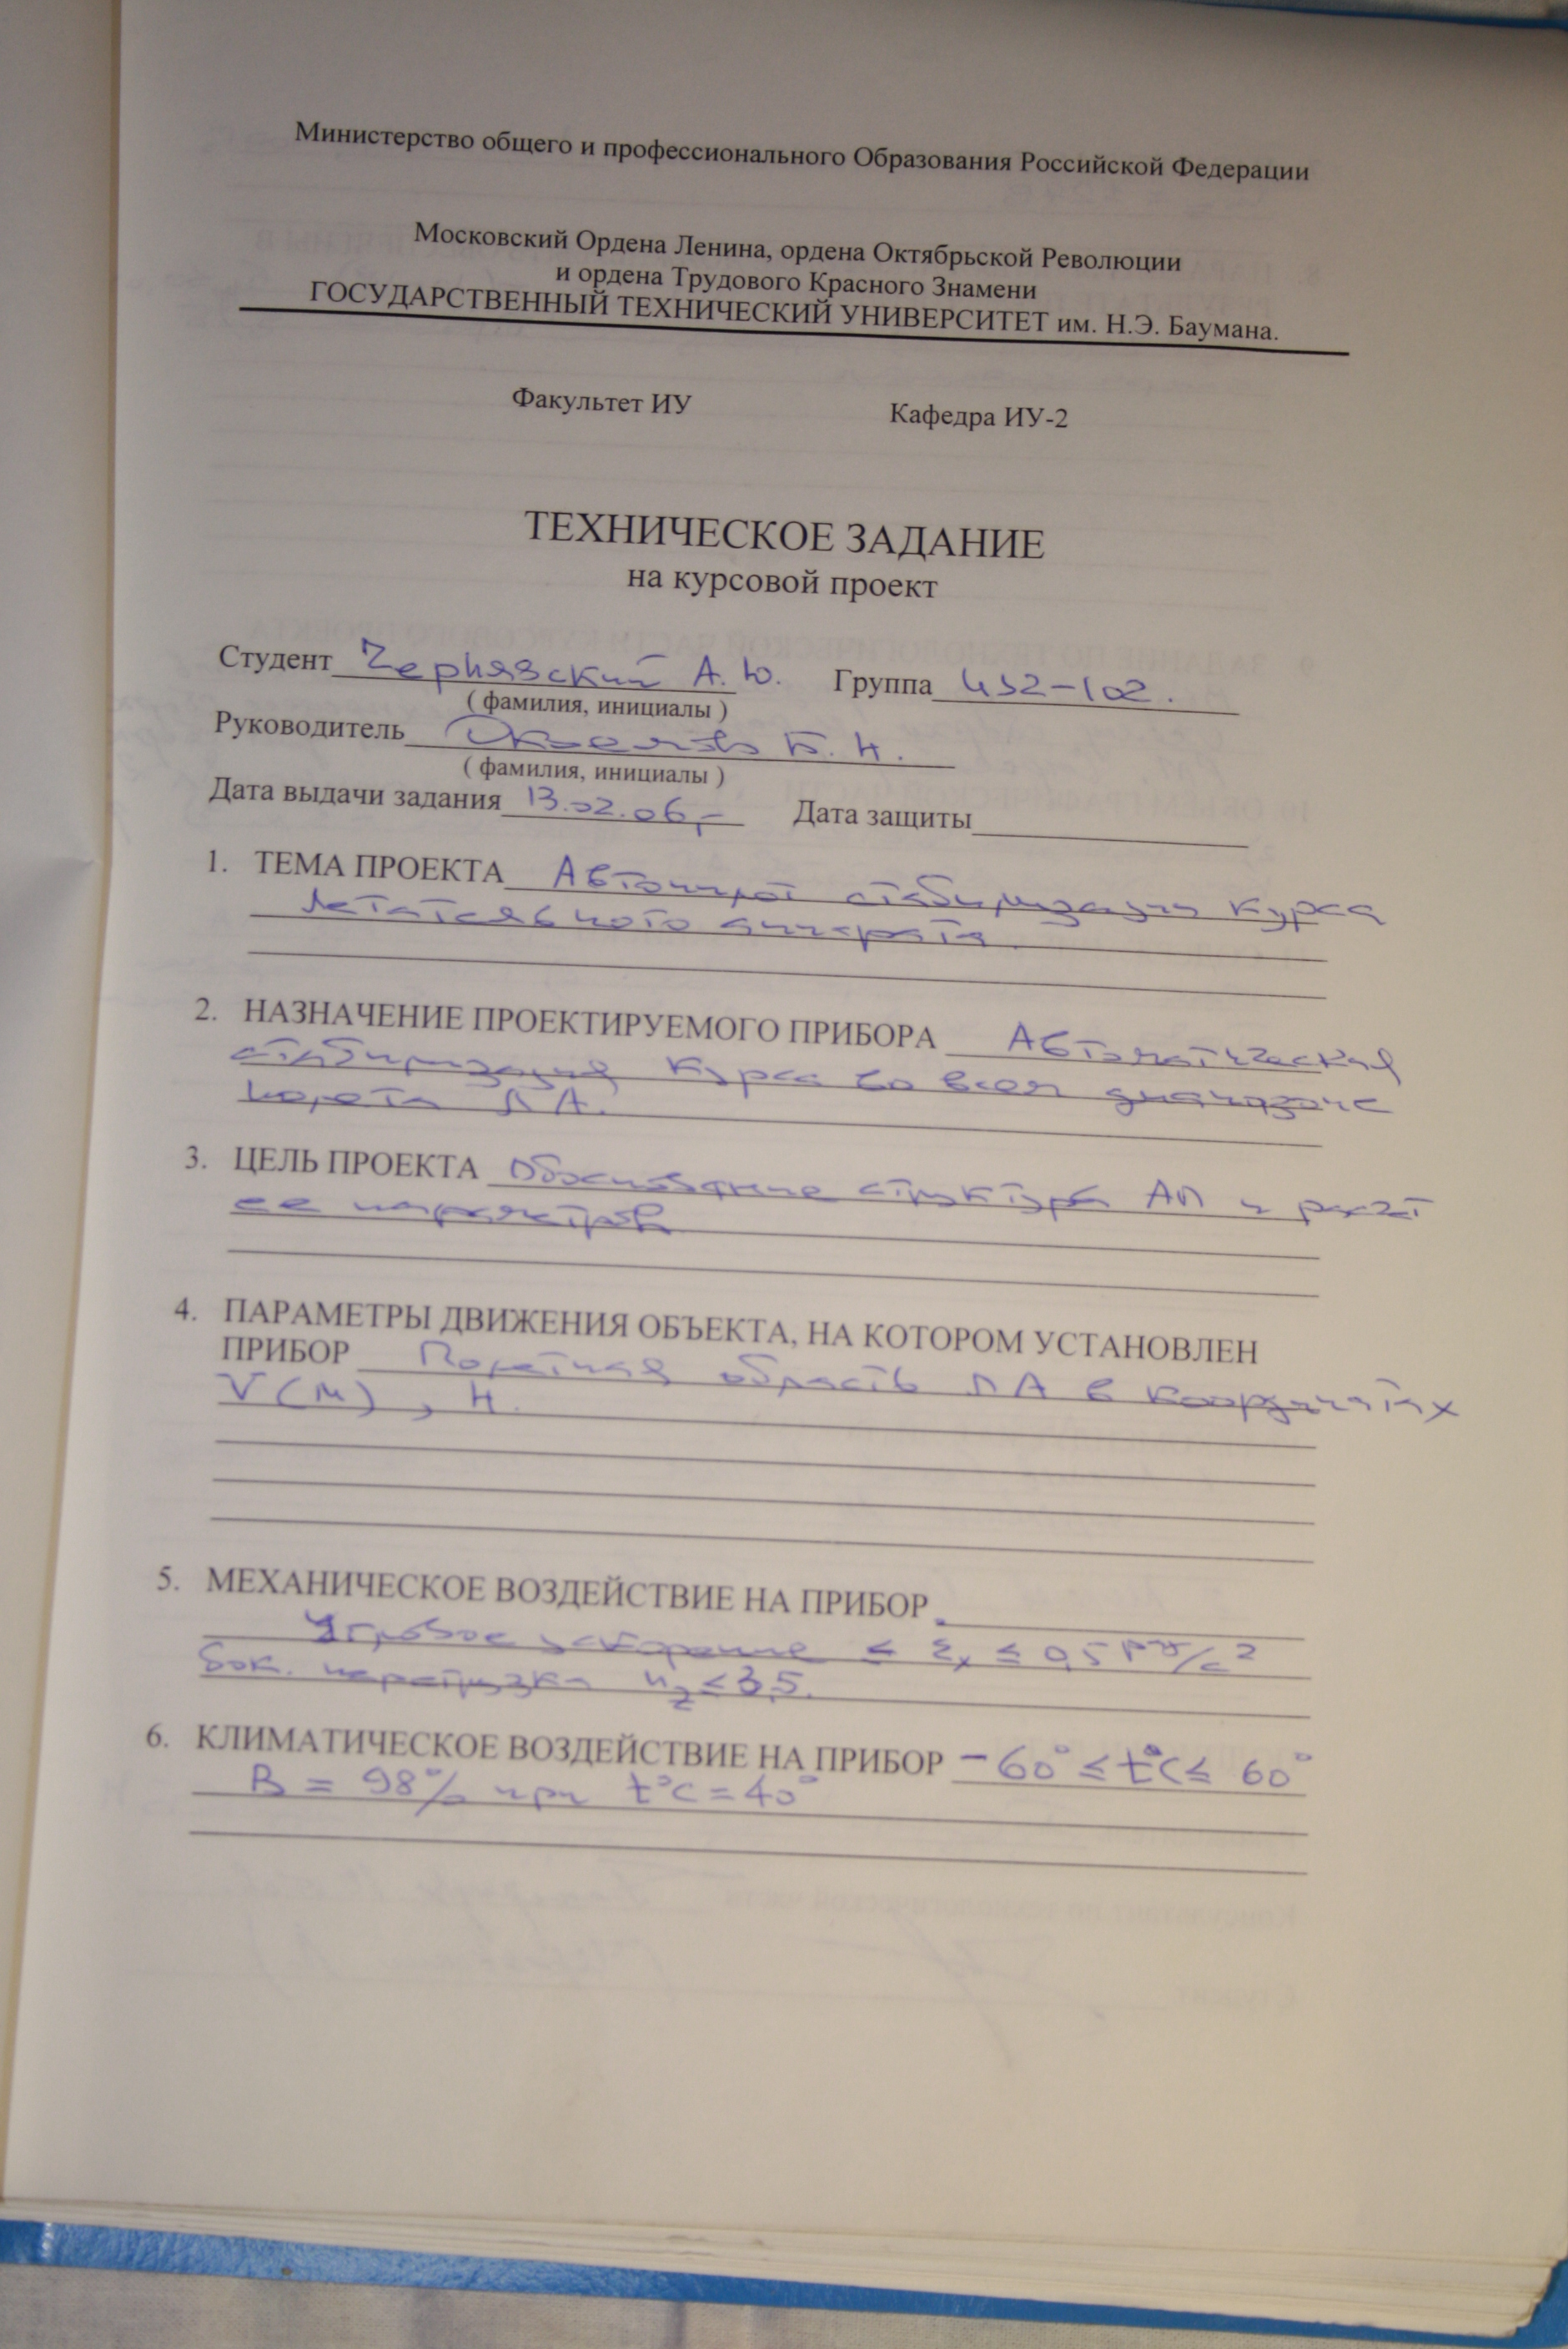 Министерство общего и профессионального Образования Российской Федерации
Московский Ордена Ленина, ордена Октябрьской Революции
и ордена Трудового Красного Знамени
ГОСУДАРСТВЕННЫЙ ТЕХНИЧЕСКИЙ УНИВЕРСИТЕТ им. Н.Э. Баумана.
Факультет ИУ Кафедра ИУ-2
ТЕХНИЧЕСКОЕ ЗАДАНИЕ
на курсовой проект
Студент Чернявский А.Ю. Группа ИУ2-102.
( фамилия, инициалы )
Руководитель Б.Н.
( фамилия, инициалы )
Дата выдачи задания 13.02.06 Дата защиты
1. ТЕМА ПРОЕКТА Автопилот стабилизации курса
летательного аппарата.
2. НАЗНАЧЕНИЕ ПРОЕКТИРУЕМОГО ПРИБОРА Автоматическая
стабилизация курса во всем диапазоне
полета ЛА.
3. ЦЕЛЬ ПРОЕКТА Обоснование структуры АП и расчет
ее параметров
4. ПАРАМЕТРЫ ДВИЖЕНИЯ ОБЪЕКТА, НА КОТОРОМ УСТАНОВЛЕН
ПРИБОР Полетная область ЛА в координатах
V(M), H.
5. МЕХАНИЧЕСКОЕ ВОЗДЕЙСТВИЕ НА ПРИБОР
Угловое ускорение ≤ εx ≤ 0,5 рад/с²
бок. перегрузка nz≤3,5.
6. КЛИМАТИЧЕСКОЕ ВОЗДЕЙСТВИЕ НА ПРИБОР -60° ≤ t°C ≤ 60°
B = 98% при t°C = 40°